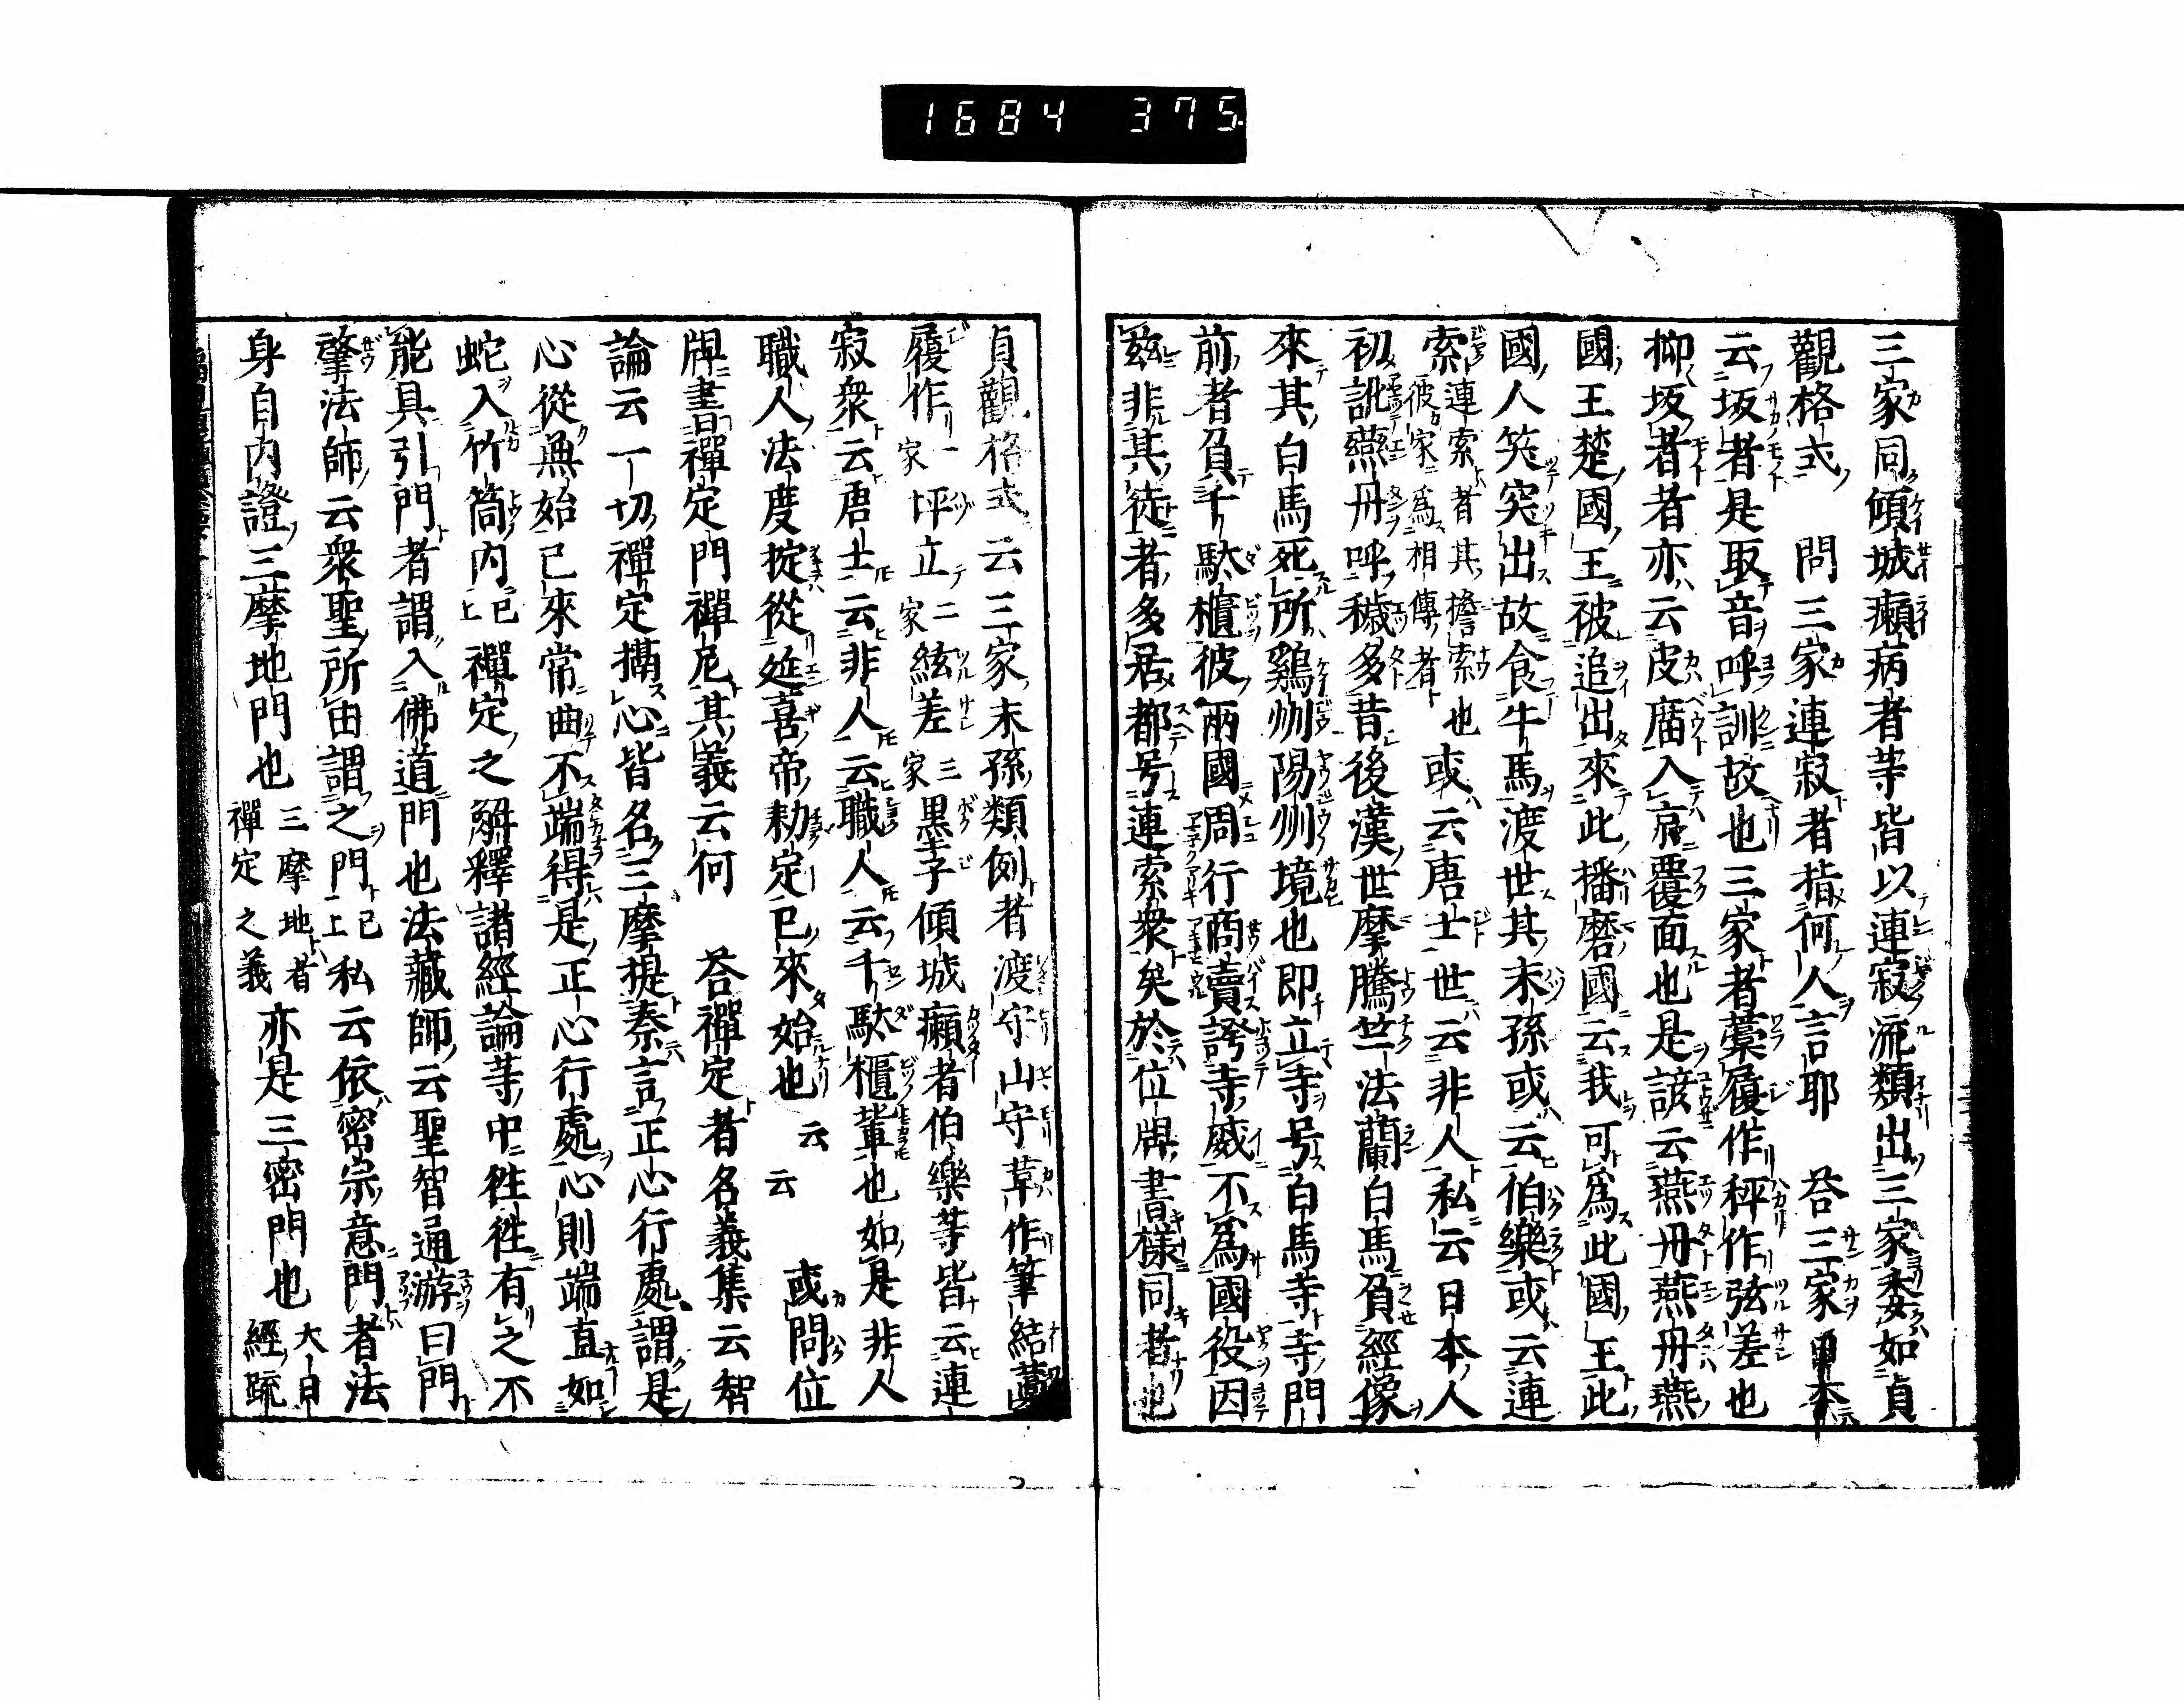 1684 375
三家同傾城癩病者等皆以連寂流類出三家委如貞
觀格式 問三家連寂者指何人言耶 答三家
云坂者是取音呼訓故也三家者藁履作秤作弦差也
抑坂者者亦云皮𢊍入京覆面也是諺云燕丹燕丹燕
國王楚國王被追出來此播磨國云我可爲此國王此
國人笑突出故食牛馬渡世其末孫或云伯樂或云連
索連索者其擔索也彼家爲相傳者或云唐士世云非人私云日本人
初訛燕丹呼穢多昔後漢世摩騰竺法蘭白馬負經像
來其白馬死所鷄州陽州境也即立寺号白馬寺寺門
前者負千駄櫃彼兩國周行商賣誇寺威不爲國役因
茲非其徒者多居都号連索衆矣於位牌書樣同者也
貞觀格式云三家末孫類例者渡守山守草作筆結
履作一家坪立二家絃差三家墨子傾城癩者伯樂等皆云連
寂衆云唐士云非人云職人云千駄櫃輩也如是非人
職人法度掟從延喜帝勅定已來始也云云 或問位
牌書禪定門禪尼其義云何 答禪定者名義集云智
論云一切禪定攝心皆名三摩提秦言正心行處謂是
心從無始已來常曲不端得是正心行處心則端直如
蛇入竹筒内已上禪定之解釋諸經論等中往往有之不
能具引門者謂入佛道門也法藏師云聖智通游曰門
肇法師云衆聖所由謂之門已上私云依密宗意門者法
身自内證三摩地門也三摩地者禪定之義亦是三密門也大日經疏